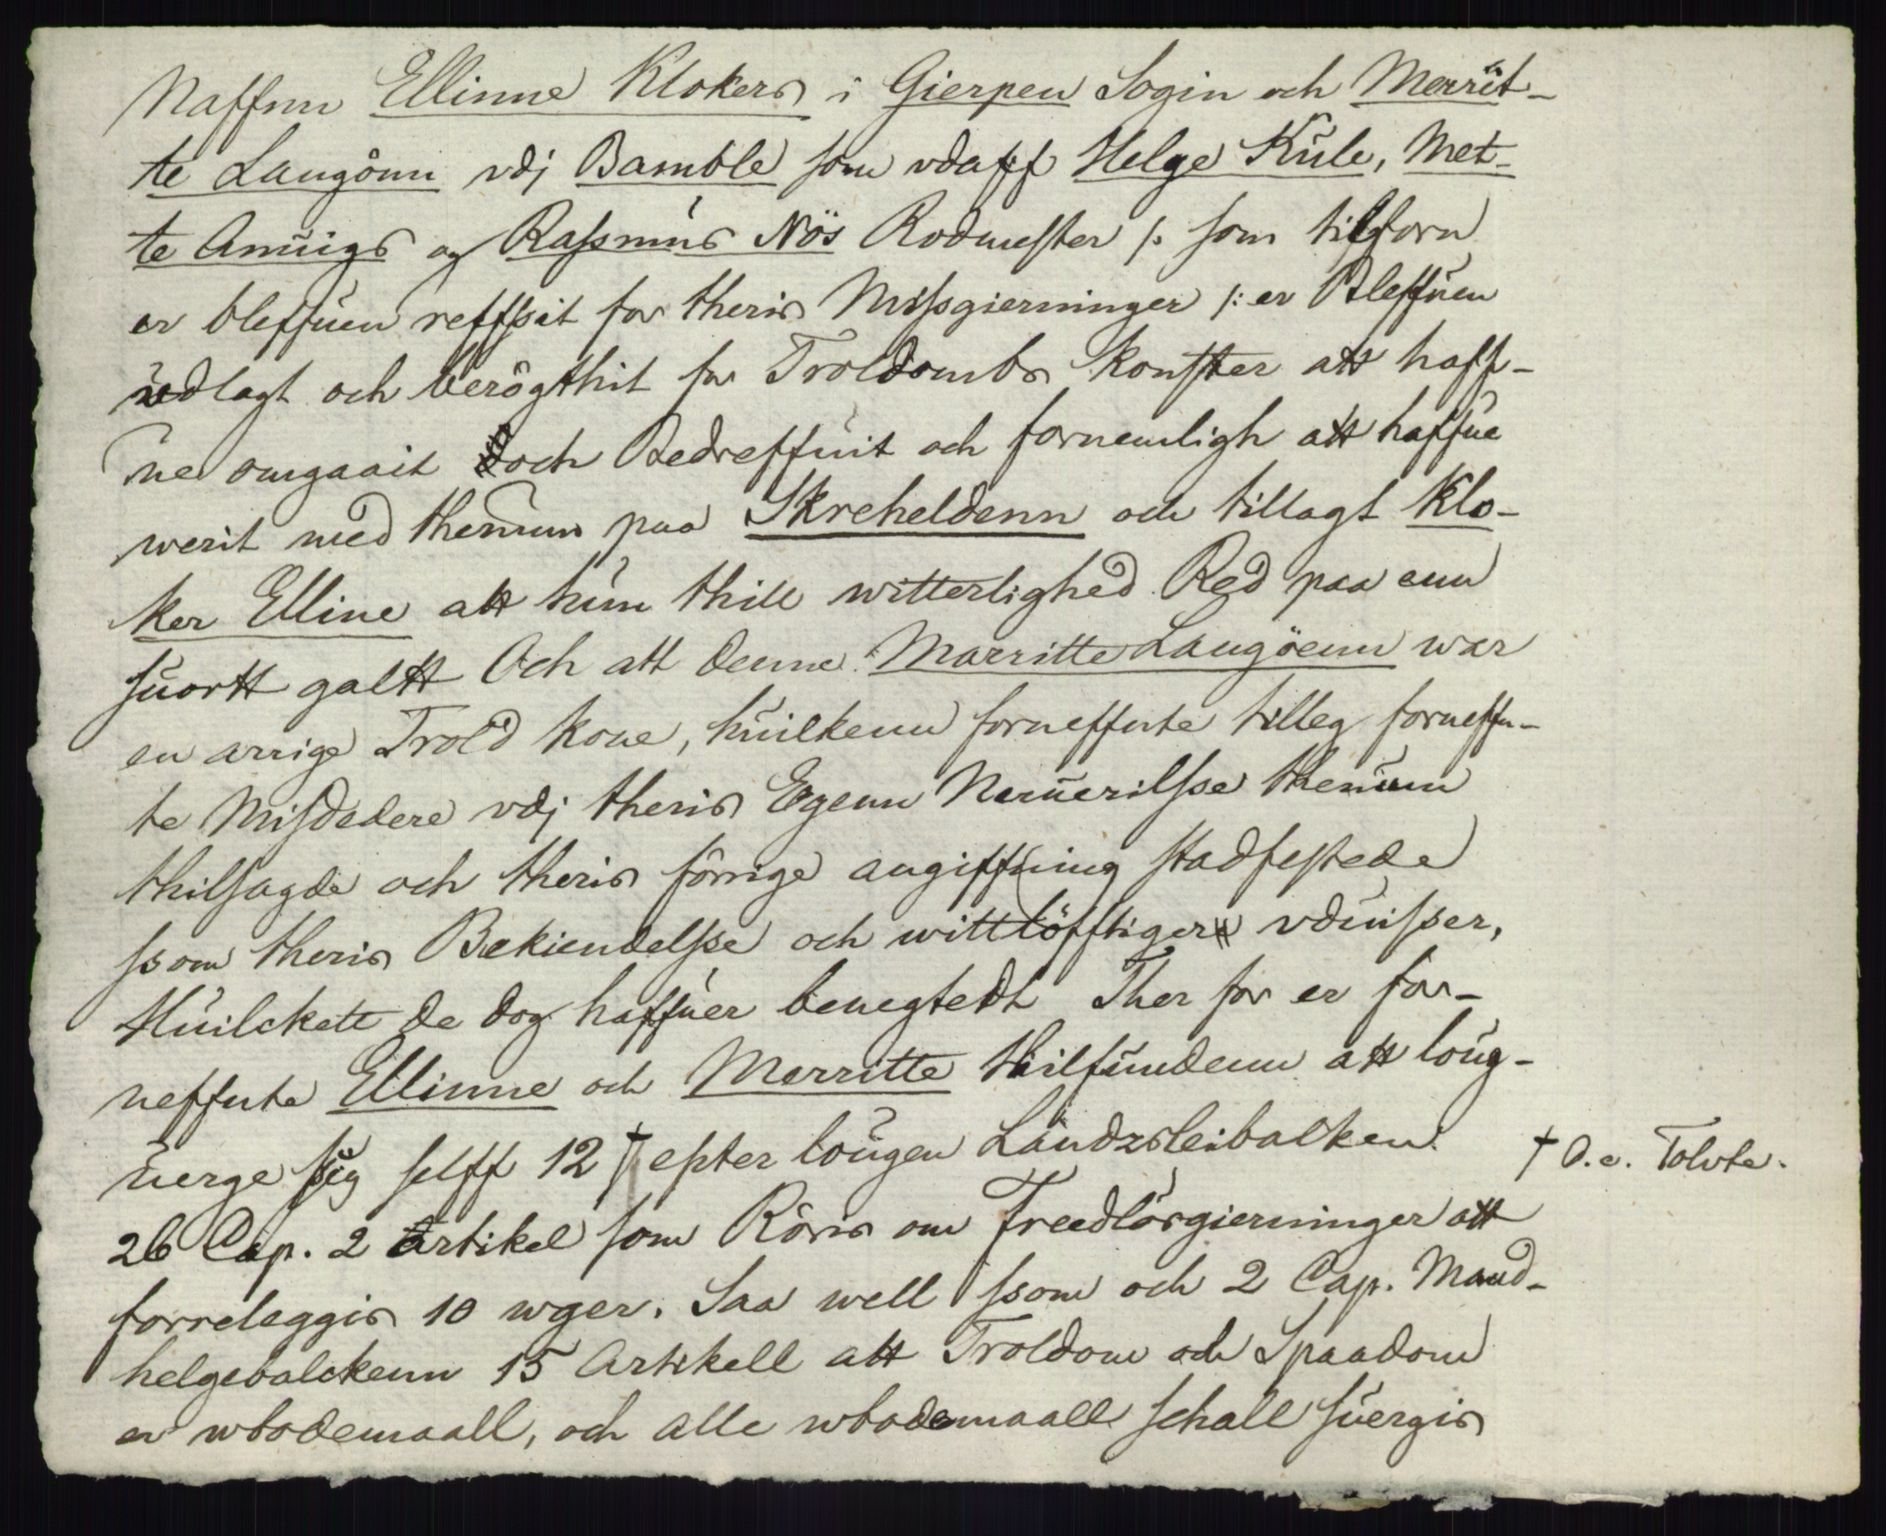 Naffnn Ellinne Klokers i Gierpen Sogin och Merrit-
te Langönn vdj Bamble som vdaff Helge Kule, Met-
te Anuigs og Rassmus Nös Rodmester /: som tilforn
er bleffuen reffsit for theris Missgierninger /: er Bleffuen
vedlagt och berögthit for Troldombs konster att haff-
ne omgaait och Bedreffuit och fornemligh att haffue
werit med themnn paa Skreheldenn och tillagt Klo-
ker Elline att hun thill witterlighed Red paa enn
suortt galtt Och att denne Marritte Langöenn war
en arrige Trold kone, huilkenn forneffnte tilleg forneffn-
te Misdedere vdj theris Egenn Neruerilsse themnn
thilsagde och theris förrige angiffning stadfestede
ssom theris Bekiendelsse och wittlöfftiger vduisser,
Huilckett de dog haffuer benegtedt Ther for er for-
neffnte Ellinne och Merritte thilfundenn att loug-
uerge sig selff 12 † epter lougen Landzsleibalken
26 Cap. 2 Artikel som Röris om Freedlösgierninger att
forreleggis 10 wger. Saa well ssom och 2 Cap. Mand-
helgebalckenn 15 Artikell att Troldom och Spaadom
er wbodemaall, och alle wbodemaall schall suergis
† O.e. Tolvte.